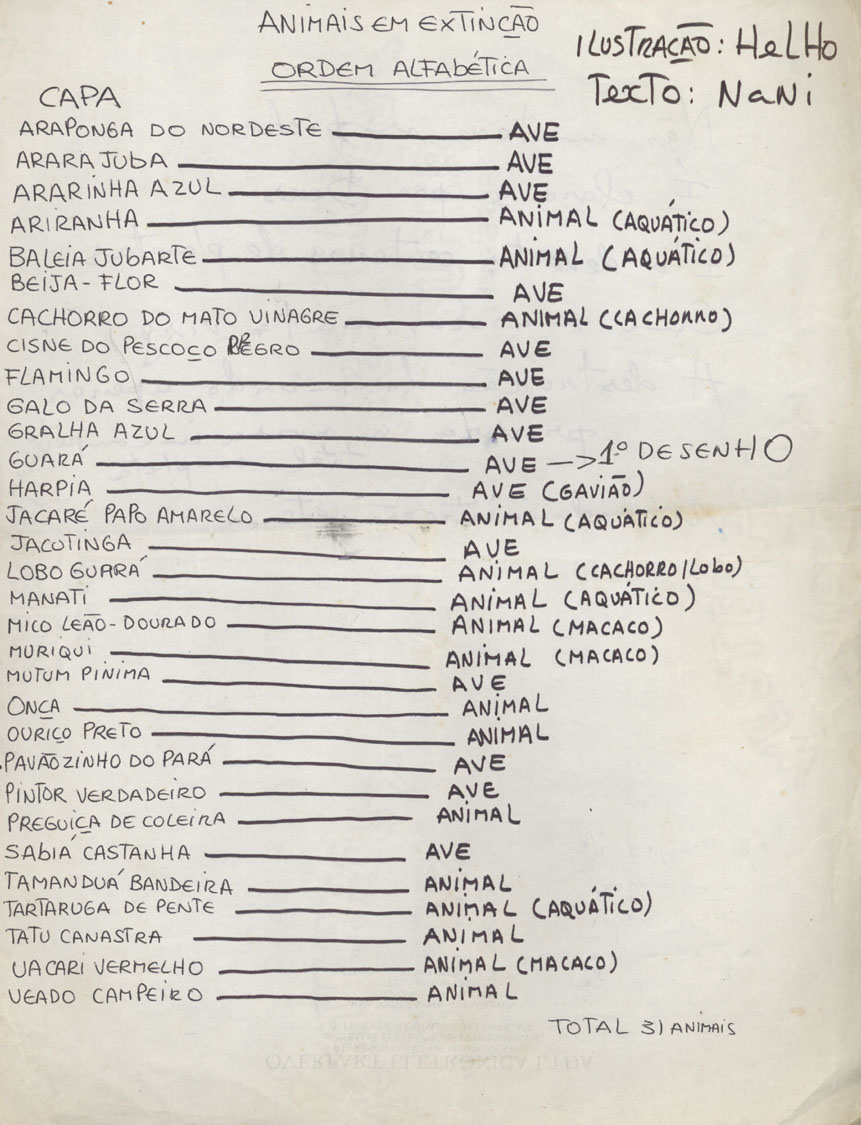 ANIMAIS EM EXTINÇÃO
ORDEM ALFABÉTICA
ILUSTRAÇÃO: HeLHo
TexTo: NaNi
CAPA
ARAPONGA DO NORDESTE — AVE
ARARA JUBA — AVE
ARARINHA AZUL — AVE
ARIRANHA — ANIMAL (AQUÁTICO)
BALEIA JUBARTE — ANIMAL (AQUÁTICO)
BEIJA-FLOR — AVE
CACHORRO DO MATO VINAGRE — ANIMAL (CACHORRO)
CISNE DO PESCOÇO NEGRO — AVE
FLAMINGO — AVE
GALO DA SERRA — AVE
GRALHA AZUL — AVE
GUARÁ — AVE —> 1º DESENHO
HARPIA — AVE (GAVIÃO)
JACARÉ PAPO AMARELO — ANIMAL (AQUÁTICO)
JACUTINGA — AVE
LOBO GUARÁ — ANIMAL (CACHORRO/LOBO)
MANATI — ANIMAL (AQUÁTICO)
MICO LEÃO-DOURADO — ANIMAL (MACACO)
MURIQUI — ANIMAL (MACACO)
MUTUM PINIMA — AVE
ONÇA — ANIMAL
OURIÇO PRETO — ANIMAL
PAVÃOZINHO DO PARÁ — AVE
PINTOR VERDADEIRO — AVE
PREGUIÇA DE COLEIRA — ANIMAL
SABIÁ CASTANHA — AVE
TAMANDUÁ BANDEIRA — ANIMAL
TARTARUGA DE PENTE — ANIMAL (AQUÁTICO)
TATU CANASTRA — ANIMAL
UACARI VERMELHO — ANIMAL (MACACO)
VEADO CAMPEIRO — ANIMAL
TOTAL 31 ANIMAIS
OVERPART ELETRONICA LTDA